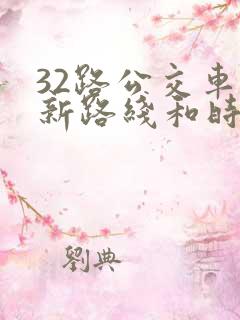 32路公交車
新路綫和時
劉典